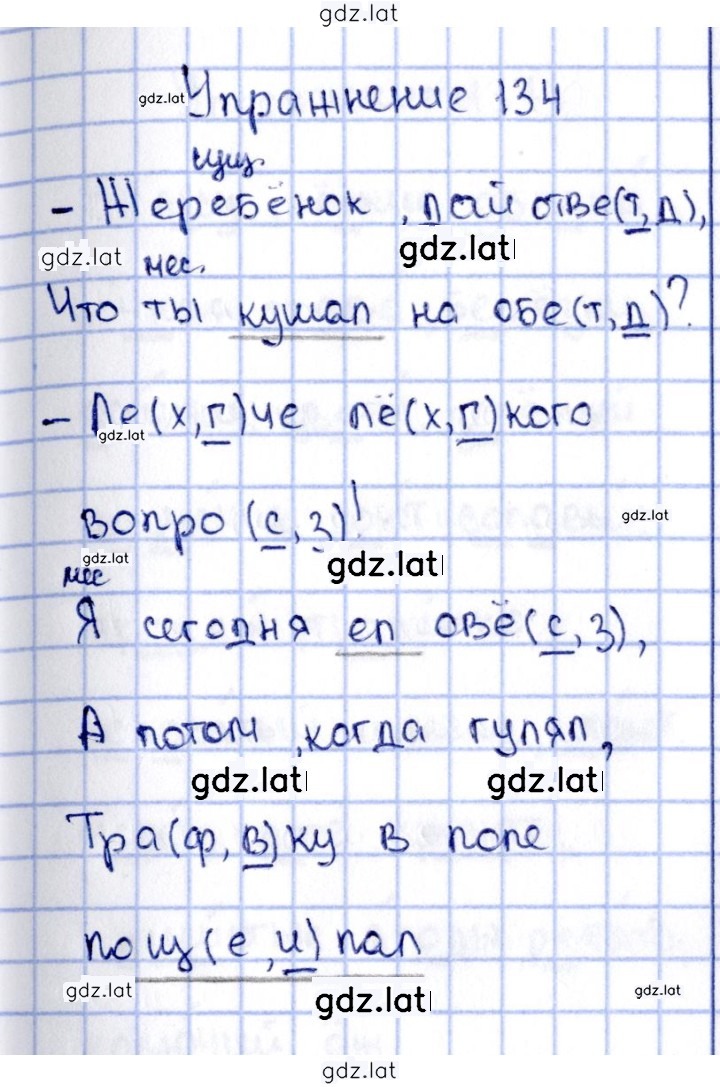 gdz.lat
gdz.lat Упражнение 134
сущ.
- Жеребёнок, дай отве(т,д),
gdz.lat gdz.lat
мес.
Что ты кушал на обе(т,д)?
- Ле(х,г)че лё(х,г)кого
gdz.lat
вопро(с,з)!
gdz.lat
gdz.lat gdz.lat
мес
Я сегодня ел овё(с,з),
А потом, когда гулял,
gdz.lat gdz.lat
Тра(ф,в)ку в поле
пощ(е,и)пал
gdz.lat gdz.lat gdz.lat
gdz.lat